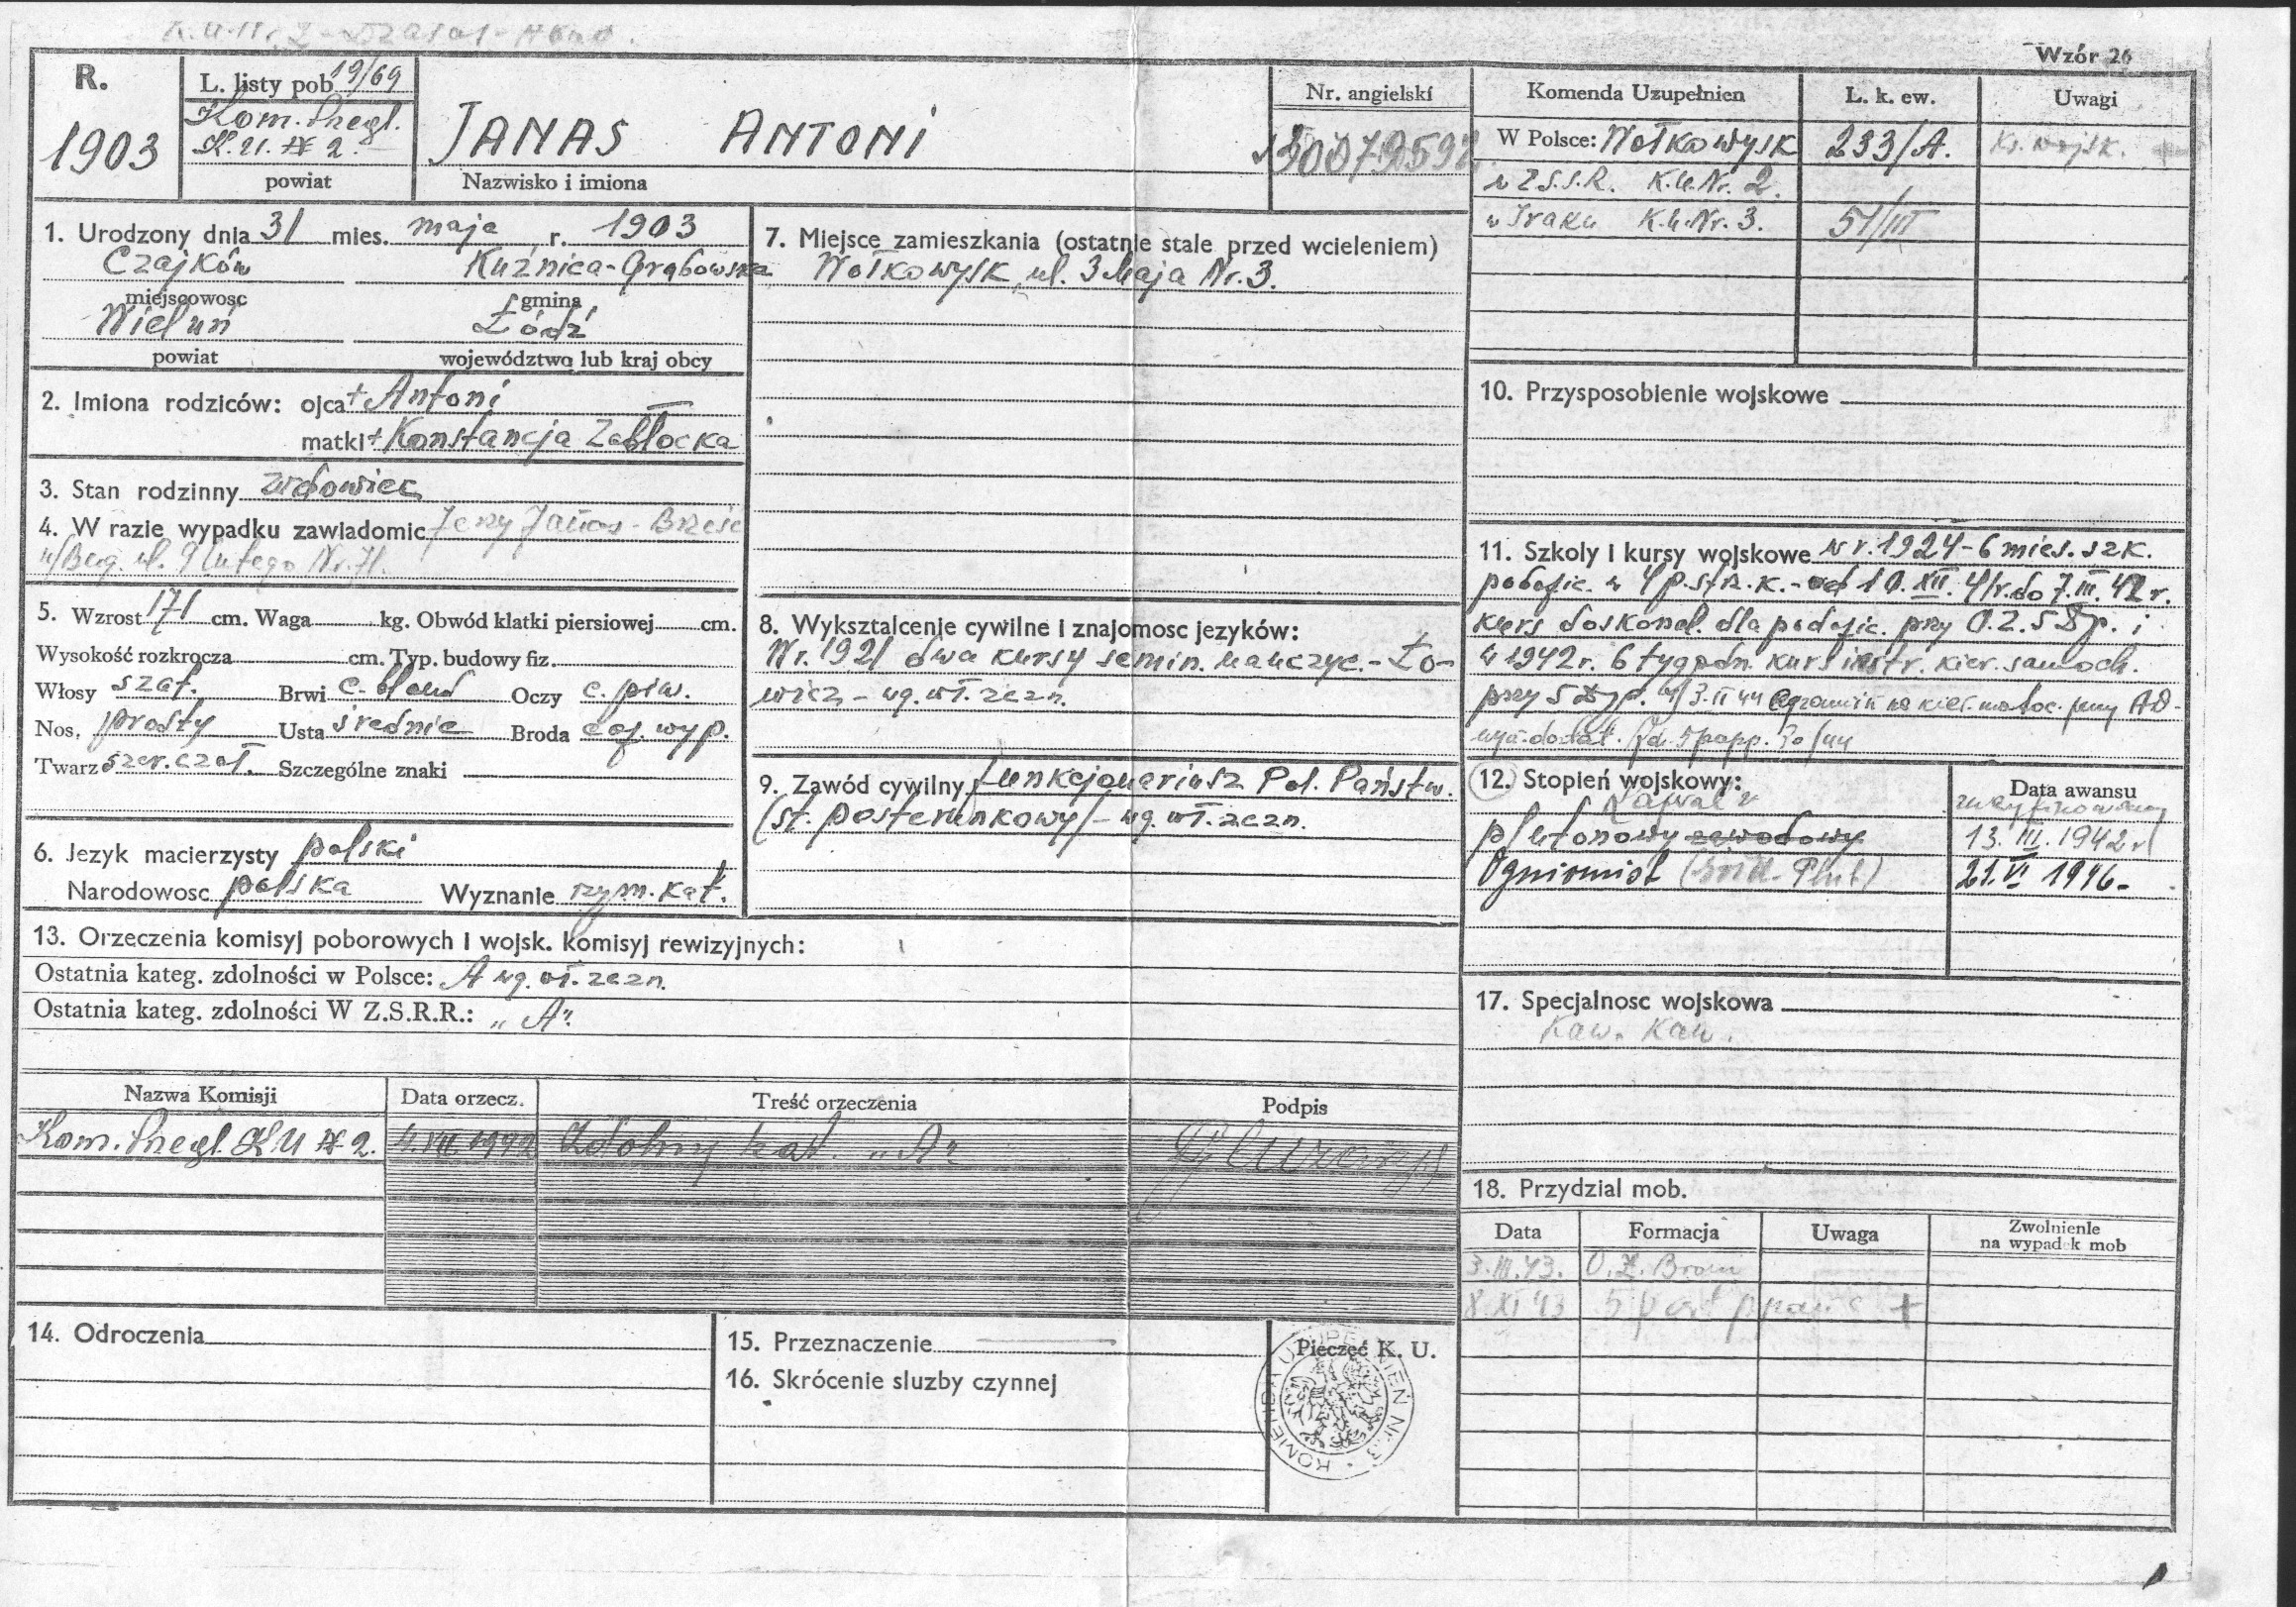 Wzór 26
R.
1903
L. listy pob 19/69
Kom. Przegl.
K. U. № 2.
powiat
JANAS ANTONI
Nazwisko i imiona
Nr. angielski
Komenda Uzupełnien
L. k. ew.
Uwagi
W Polsce: Wołkowysk
233/A.
Kr. wojsk.
w Z.S.S.R. K.U.Nr. 2.
w Iraku K.U.Nr. 3.
51/III
1. Urodzony dnia 31 mies. maja r. 1903
Czajków Kuźnica-Grabowska
miejscowosc gmina
Wieluń Łódź
powiat województwo lub kraj obcy
2. Imiona rodziców: ojca + Antoni
matki + Konstancja Zabłocka
3. Stan rodzinny wdowiec
4. W razie wypadku zawiadomic Jerzy Janas - Brześć
n/Bug. ul. 9 Lutego Nr. 71.
5. Wzrost 171 cm. Waga kg. Obwód klatki piersiowej cm.
Wysokość rozkrocza cm. Typ. budowy fiz.
Włosy szat. Brwi c. blond Oczy c. piw.
Nos. prosty Usta średnie Broda
Twarz Szczególne znaki
6. Jezyk macierzysty polski
Narodowosc polska Wyznanie rzym. kat.
7. Miejsce zamieszkania (ostatnje stale przed wcieleniem)
Wołkowysk, ul. 3 Maja Nr. 3.
8. Wyksztalcenje cywilne i znajomosc jezyków:
W r. 1921 dwa kursy semin. nauczyc. - Ło-
wicz - wg. wł. zezn.
9. Zawód cywilny funkcjonariusz Pol. Państw.
(st. posterunkowy) - wg. wł. zezn.
10. Przysposobienie wojskowe
11. Szkoly i kursy wojskowe w r. 1924 - 6 mies. szk.
podofic. w 4 p. strz. k. - od 10. XII. 41 r. do 7. III. 42 r.
kurs doskonal. dla podofic. przy O.Z. 5 Dp. i
w 1942 r. 6 tygodn. kurs instr. kier. samoch.
przy 5
12. Stopień wojskowy:
Data awansu
plutonowy zawodowy
13. III. 1942 r
Ogniomistrz
21. VI 1946 -
13. Orzeczenia komisyj poborowych i wojsk. komisyj rewizyjnych:
Ostatnia kateg. zdolności w Polsce: A wg. wł. zezn.
Ostatnia kateg. zdolności W Z.S.R.R.: „A"
Nazwa Komisji
Data orzecz.
Treść orzeczenia
Podpis
Kom. Przegl. K U № 2.
Zdolny kat. „A"
14. Odroczenia
15. Przeznaczenie
16. Skrócenie sluzby czynnej
Pieczęć K. U.
KOMENDA UZUPEŁNIEŃ Nr. 3
17. Specjalnosc wojskowa
Kaw. Kaw.
18. Przydzial mob.
Data
Formacja
Uwaga
Zwolnienie
na wypadek mob
3. III. 43.
8. XI 43